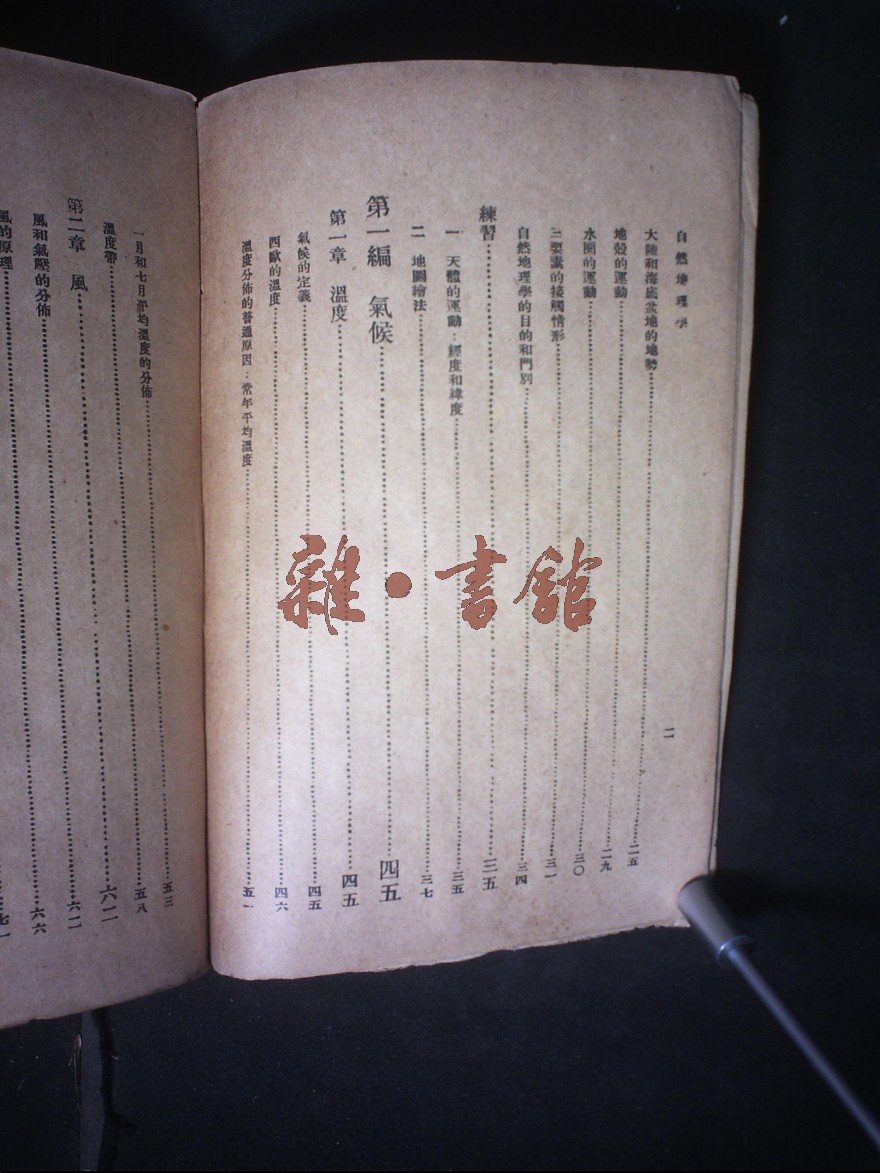 自然地理學
二
大陸和海底盆地的地勢……二五
地殼的運動……二九
水圈的運動……三〇
三要素的接觸情形……三一
自然地理學的目的和門別……三四
練習……三五
一 天體的運動：經度和緯度……三五
二 地圖繪法……三七
第一編 氣候……四五
第一章 溫度……四五
氣候的定義……四五
四歐的溫度……四六
溫度分佈的普通原因：常年平均溫度……五一
一月和七月平均溫度的分佈……五三
溫度帶……五八
第二章 風……六二
風和氣壓的分佈……六二
風的原理……六六
雜·書館